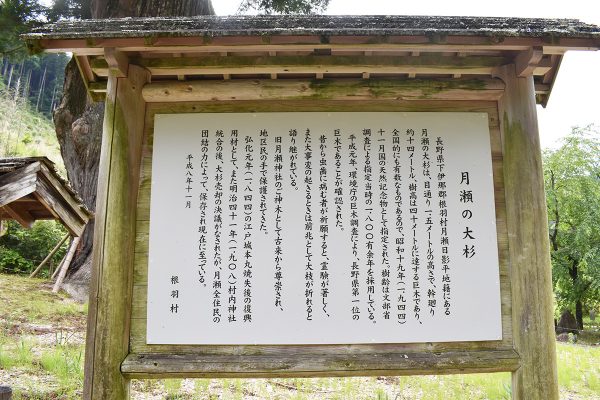 月瀬の大杉
長野県下伊那郡根羽村月瀬日影平地籍にある
月瀬の大杉は、目通り一・五メートルの高さで、幹廻り
約十四メートル、樹高は四十メートルに達する巨木であり、
全国的にも有数なものであるので、昭和十九年(一九四四)
十一月国の天然記念物として指定された。樹齢は文部省
調査による指定当時の一八〇〇有余年を採用している。
平成元年、環境庁の巨木調査により、長野県第一位の
巨木であることが確認された。
昔から虫歯に病む者が祈願すると、霊験が著しく、
また大事変の起きるときは前兆として大枝が折れると
語り継がれている。
旧月瀬神社のご神木として古来から尊崇され、
地区民の手で保護されてきた。
弘化元年(一八四四)の江戸城本丸焼失後の復興
用材として、また明治四十一年(一九〇八)村内神社
統合の後、大杉売却の決議がなされたが、月瀬全住民の
団結の力によって、保存され現在に至っている。
平成八年十一月
根羽村